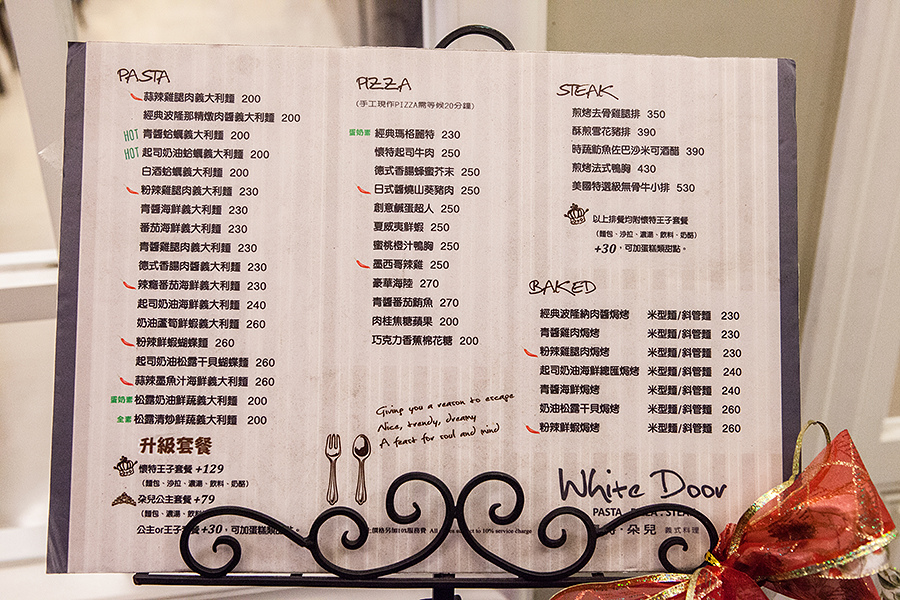 PASTA
蒜辣雞腿肉義大利麵 200
經典波隆那精燉肉醬義大利麵 200
HOT 青醬蛤蠣義大利麵 200
HOT 起司奶油蛤蠣義大利麵 200
白酒蛤蠣義大利麵 200
粉辣雞腿肉義大利麵 230
青醬海鮮義大利麵 230
番茄海鮮義大利麵 230
青醬雞腿肉義大利麵 230
德式香腸肉醬義大利麵 230
辣癮番茄海鮮義大利麵 230
起司奶油海鮮義大利麵 240
奶油蘆筍鮮蝦義大利麵 260
粉辣鮮蝦蝴蝶麵 260
起司奶油松露干貝蝴蝶麵 260
蒜辣墨魚汁海鮮義大利麵 260
蛋奶素 松露奶油鮮蔬義大利麵 200
全素 松露清炒鮮蔬義大利麵 200
升級套餐
懷特王子套餐 +129
(麵包、沙拉、濃湯、飲料、奶酪)
朵兒公主套餐 +79
(麵包、濃湯、飲料
公主or王子套餐+30，可加蛋糕類甜點。
PIZZA
(手工現作PIZZA需等候20分鐘)
蛋奶素 經典瑪格麗特 230
懷特起司牛肉 250
德式香腸蜂蜜芥末 250
日式醬燒山葵豬肉 250
創意鹹蛋超人 250
夏威夷鮮蝦 250
蜜桃橙汁鴨胸 250
墨西哥辣雞 250
豪華海陸 270
青醬番茄鮪魚 270
肉桂焦糖蘋果 200
巧克力香蕉棉花糖 200
Giving you a reason to escape
Nice, trendy, dreamy
A feast for soul and mind
上價格另加10%服務費 All prices subject to 10% service charge
STEAK
煎烤去骨雞腿排 350
酥煎雪花豬排 390
時蔬魴魚佐巴沙米可酒醋 390
煎烤法式鴨胸 430
美國特選級無骨牛小排 530
以上排餐均附懷特王子套餐
(麵包、沙拉、濃湯、飲料、奶酪)
+30，可加蛋糕類甜點。
BAKED
經典波隆納肉醬焗烤 米型麵/斜管麵 230
青醬雞肉焗烤 米型麵/斜管麵 230
粉辣雞腿肉焗烤 米型麵/斜管麵 230
起司奶油海鮮總匯焗烤 米型麵/斜管麵 240
青醬海鮮焗烤 米型麵/斜管麵 240
奶油松露干貝焗烤 米型麵/斜管麵 260
粉辣鮮蝦焗烤 米型麵/斜管麵 260
White Door
PASTA . PIZZA . STEAK
朵兒 義式料理